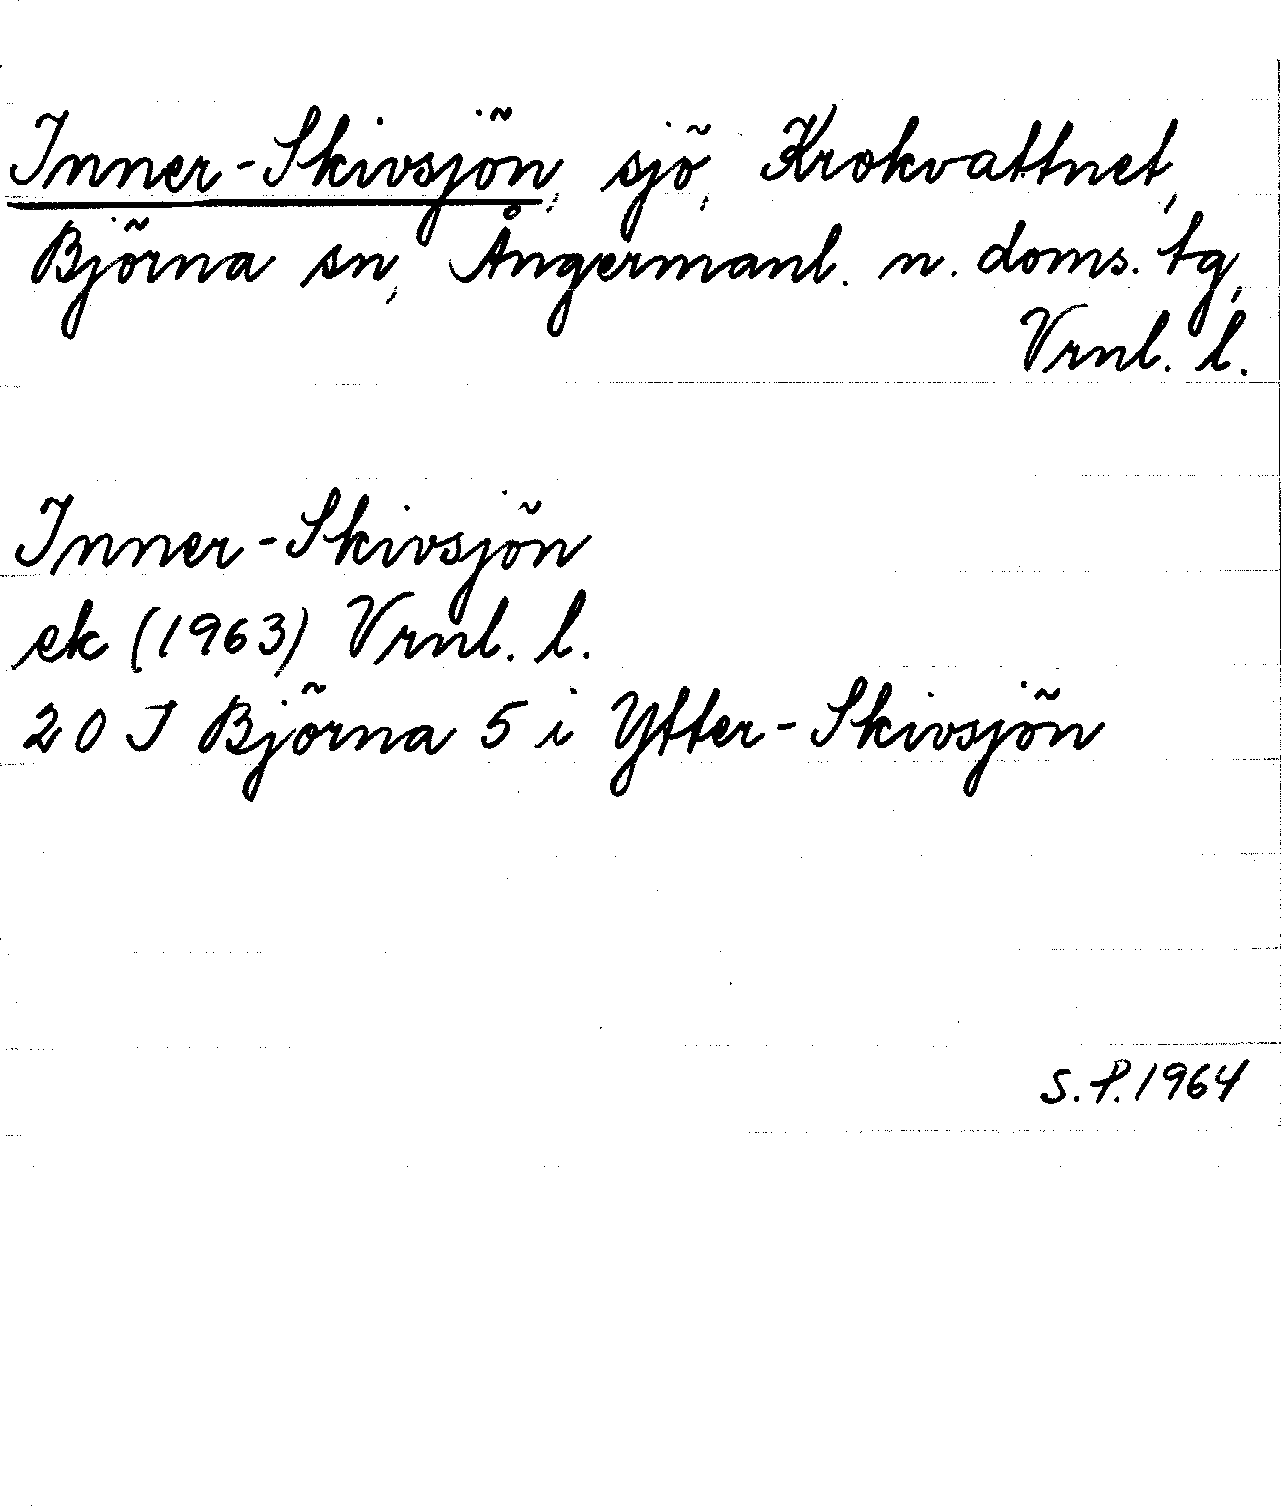 Inner-Skivsjön, sjö, Krokvattnet,
Björna sn, Ångermanl. n. doms. tg,
Vrnl. l.
Inner-Skivsjön
ek (1963) Vrnl. l.
20 J Björna 5 i Ytter-Skivsjön
S.P. 1964